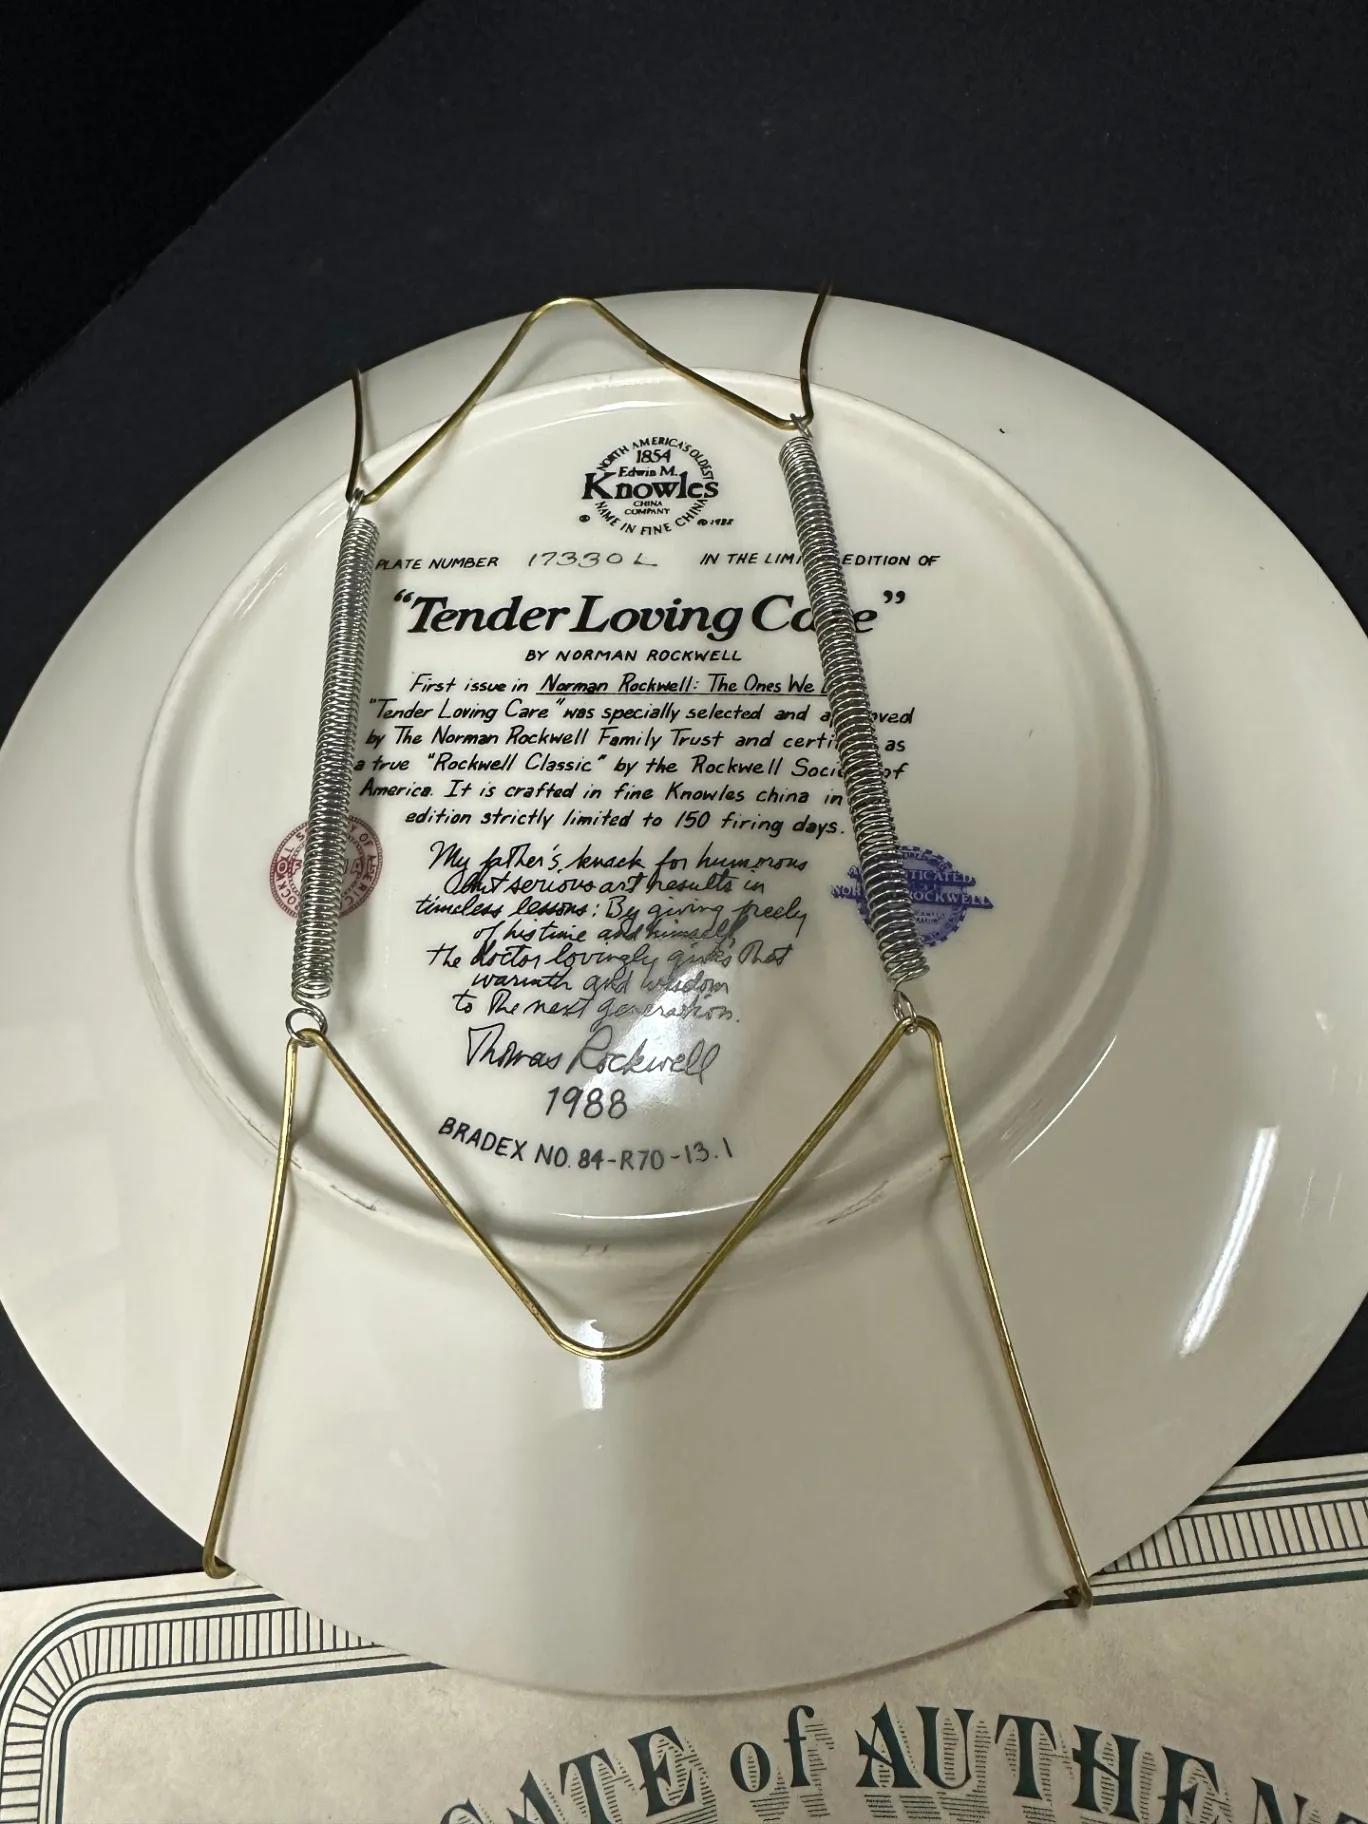 NORTH AMERICA'S OLDEST
1854
Edwin M.
Knowles
CHINA
COMPANY
NAME IN FINE CHINA
® © 1988
PLATE NUMBER 17330L IN THE LIMI EDITION OF
"Tender Loving Ca e"
BY NORMAN ROCKWELL
First issue in Norman Rockwell: The Ones We
"Tender Loving Care" was specially selected and a oved
by The Norman Rockwell Family Trust and certi as
a true "Rockwell Classic" by the Rockwell Soci of
America. It is crafted in fine Knowles china in
edition strictly limited to 150 firing days.
My father's knack for humorous
but serious art results in
timeless lessons: By giving freely
of his time and himself,
the doctor lovingly gives that
warmth and wisdom
to the next generation.
Thomas Rockwell
1988
BRADEX NO. 84-R70-13.1
ROCK L S Y OF MERIC
NTICATED
NOR ROCKWELL
CATE of AUTHEN